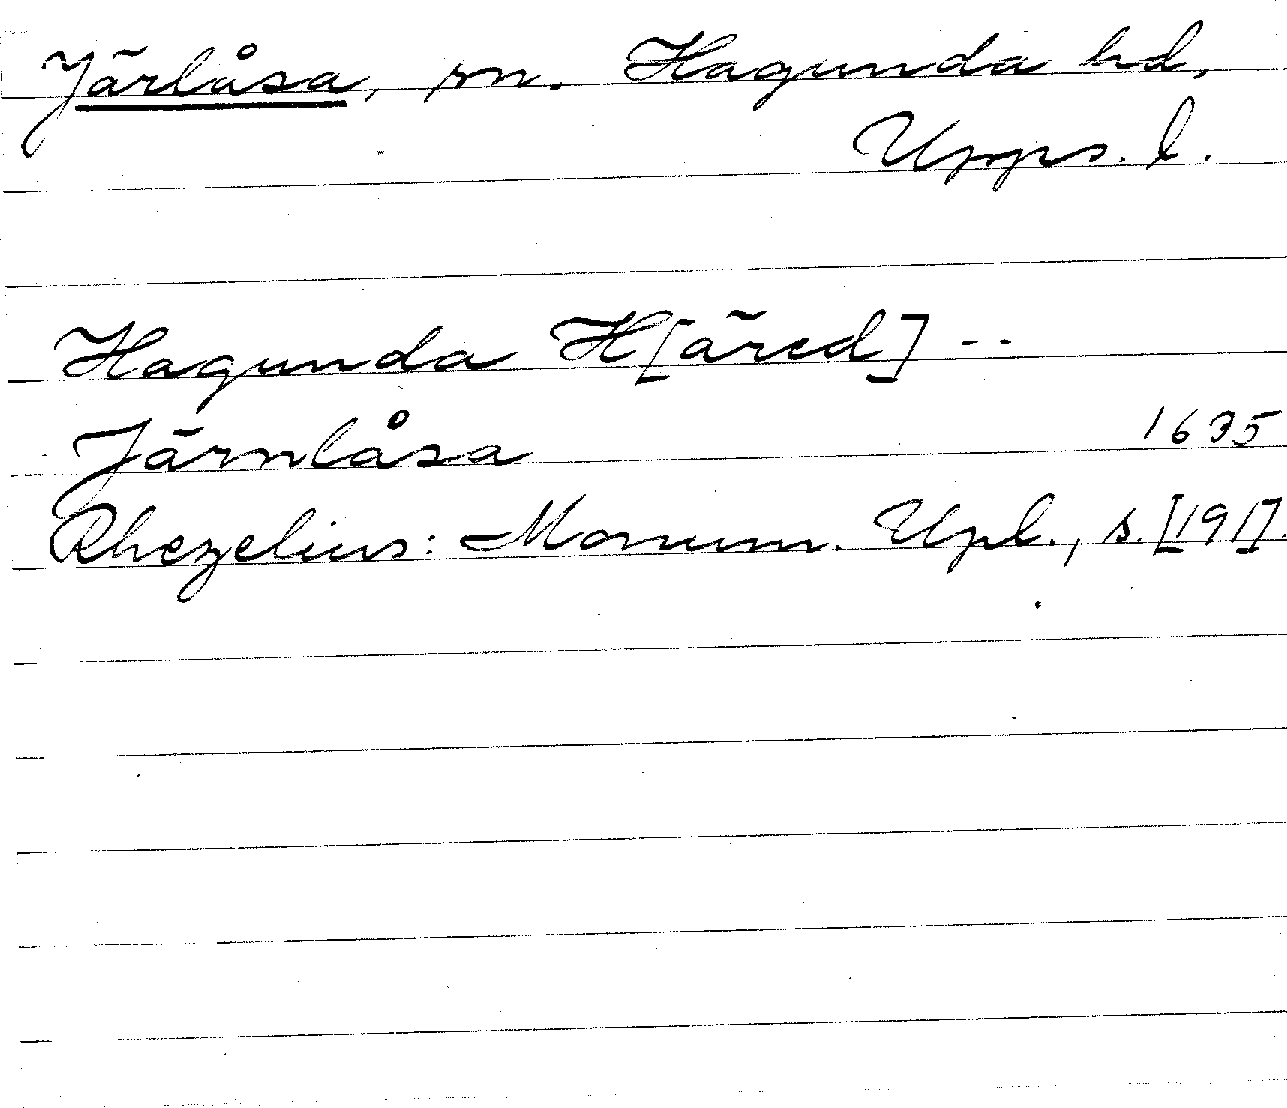 Järlåsa, sn. Hagunda hd,
Upps. l.
Hagunda H[äred] --
Järnlåsa 1635
Rhezelius: Monum. Upl., s. [191].